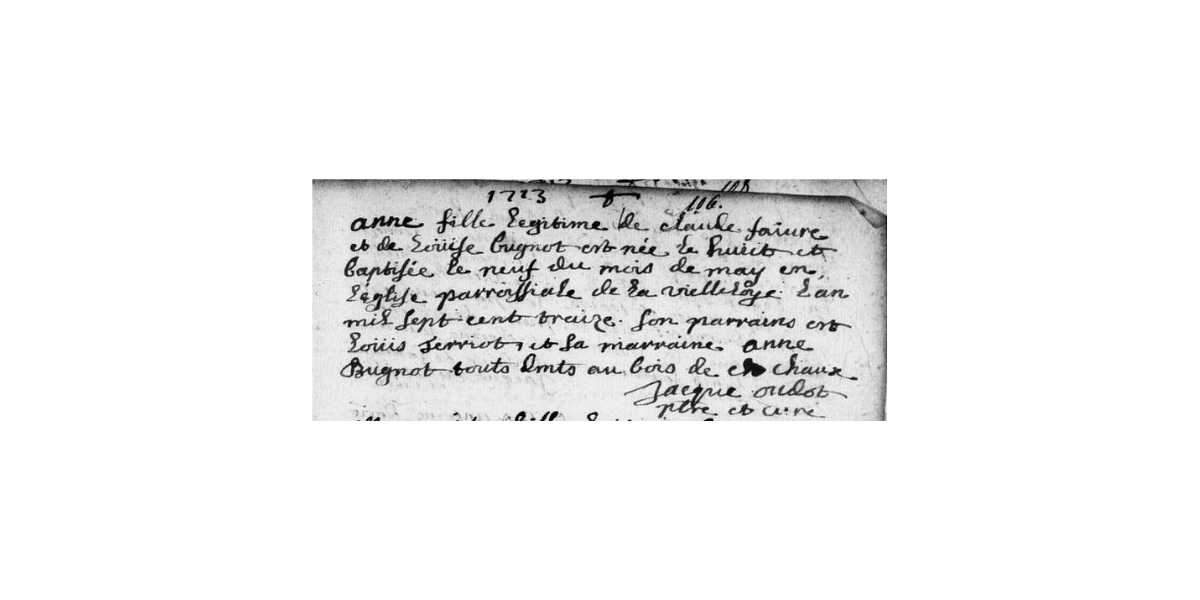 1713
116.
anne fille legitime de claude faivre
et de Loüise bugnot est née le huit et
baptisée le neuf du mois de may en
L'eglise parroissiale de la vielleloÿe. L'an
mil sept cent traize. son parrains est
Loüis Terriot, et sa marraine anne
Bugnot touts dmts au bois de chaux
Jacque oudot
ptre et curé